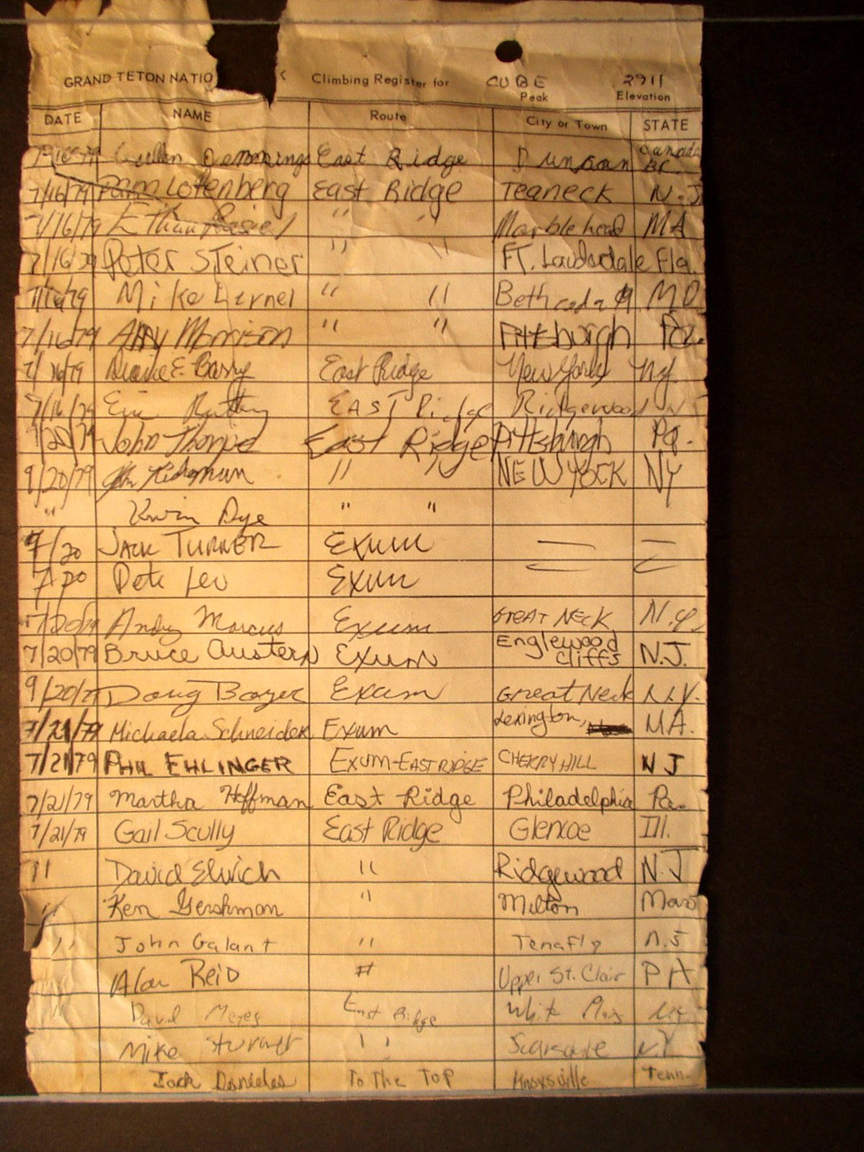 GRAND TETON NATIO Climbing Register for CUBE 2911
Peak Elevation
DATE NAME Route City or Town STATE
7/16/79 Cullen Jennings East Ridge Duncan Canada BC.
7/16/79 Pam Lottenberg East Ridge Teaneck N.J
7/16/79 Ethan " " Marblehead MA
7/16/79 Peter Steiner " " FT. Lauderdale Fla.
7/16/79 Mike " " MD
7/16/79 Amy Morrison " " Pittsburgh Pa.
7/16/79 Diane E. Barry East Ridge New York NY.
7/16/79 EAST Ridge Ridgewood
7/20/79 John Thorpe East Ridge Pittsburgh Pa.
9/20/79 " NEW YORK NY
" Dye " "
7/20 JACK TURNER EXUM — —
7/20 Pete Lev EXUM — —
7/20/79 Andy Marcus Exum GREAT NECK N.Y.
7/20/79 Bruce Austern EXUM Englewood Cliffs N.J.
9/20/7 Doug Exum Great Neck N.Y.
7/21/79 Michaela Schneider Exum Lexington, MA.
7/21/79 PHIL EHLINGER EXUM-EAST RIDGE CHERRY HILL NJ
7/21/79 Martha Hoffman East Ridge Philadelphia Pa.
7/21/79 Gail Scully East Ridge Glencoe Ill.
11 David " Ridgewood N.J
" Ken Gershman " Milton Mass
" John Galant " Tenafly N.J
Alan Reid # Upper St. Clair PA
David Meyes East Ridge
Mike Turner " Scarsdale N.Y
Jack Danieles To The Top Knoxsville Tenn.